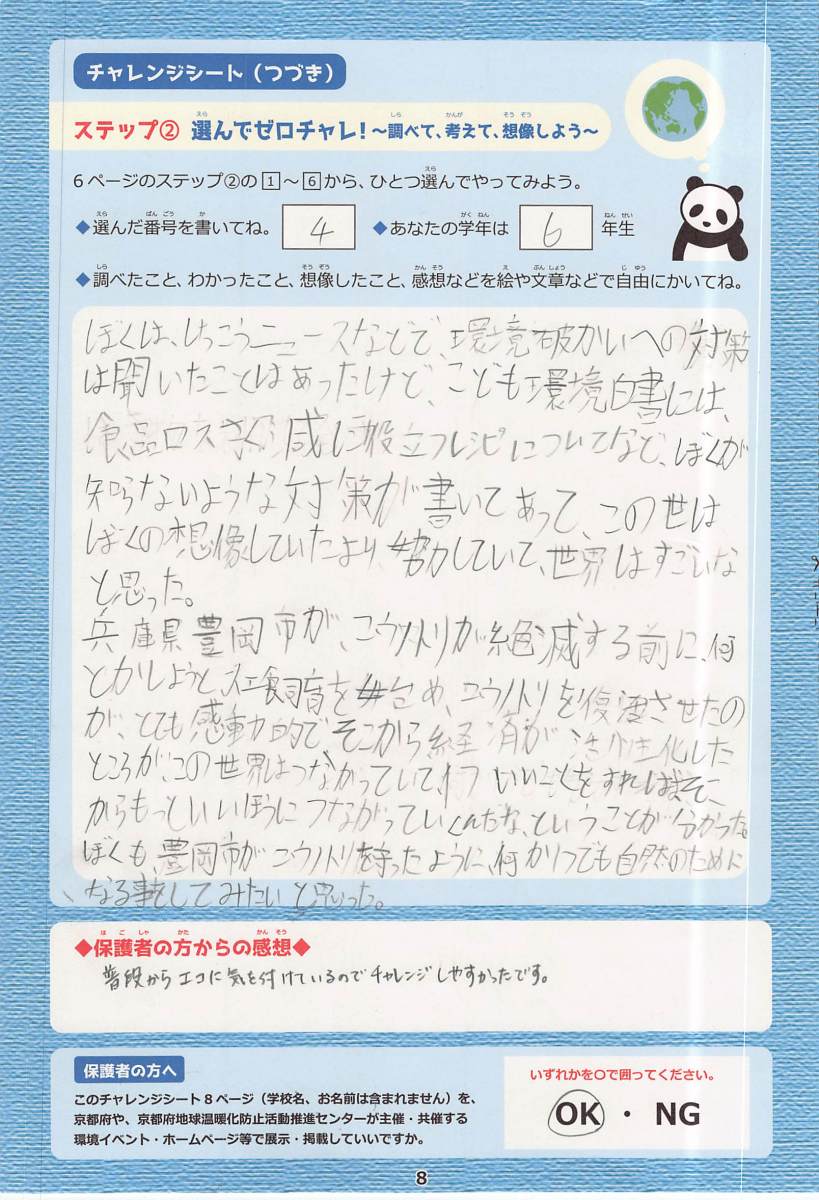 チャレンジシート（つづき）
ステップ② 選んでゼロチャレ！～調べて、考えて、想像しよう～
6ページのステップ②の1～6から、ひとつ選んでやってみよう。
◆選んだ番号を書いてね。 4 ◆あなたの学年は 6 年生
◆調べたこと、わかったこと、想像したこと、感想などを絵や文章などで自由にかいてね。
ぼくは、いちおうニュースなどで、環境破かいへの対策
は聞いたことはあったけど、こども環境白書には、
食品ロスさく減に役立つレシピについてなど、ぼくが
知らないような対策が書いてあって、この世は
ぼくの想像していたより、協力していて、世界はすごいな
と思った。
兵庫県豊岡市が、コウノトリが絶滅する前に、何
とかしようと、人工飼育を始め、コウノトリを復活させたの
が、とても感動的でそこから経済が活性化した
ところが、この世界はつながっていて、1ついいことをすれば、そこ
からもっといいほうにつながっていくんだな、ということが分かった。
ぼくも、豊岡市がコウノトリを守ったように、何か1つでも自然のために
なる事をしてみたいと思った。
◆保護者の方からの感想◆
普段からエコに気を付けているのでチャレンジしやすかったです。
保護者の方へ
このチャレンジシート8ページ（学校名、お名前は含まれません）を、
京都府や、京都府地球温暖化防止活動推進センターが主催・共催する
環境イベント・ホームページ等で展示・掲載していいですか。
いずれかを〇で囲ってください。
OK ・ NG
8